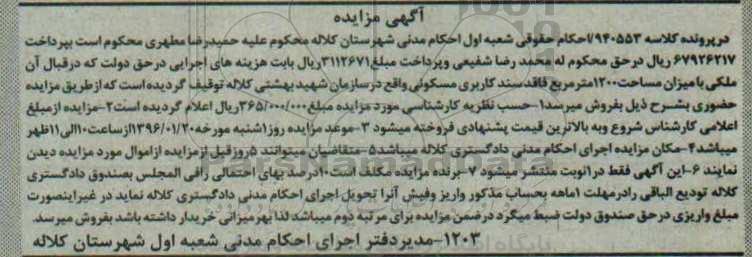 آگهی مزایده
در پرونده کلاسه ۹۴۰۵۵۳/احکام حقوقی شعبه اول احکام مدنی شهرستان کلاله محکوم علیه حمیدرضا مطهری محکوم است بپرداخت
۶۷۹۲۶۲۱۷ ریال در حق محکوم له محمد رضا شفیعی و پرداخت مبلغ ۳۱۱۲۶۷۱ریال بابت هزینه های اجرایی در حق دولت که در قبال آن
ملکی با میزان مساحت ۱۲۰۰مترمربع فاقد سند کاربری مسکونی واقع در سازمان شهید بهشتی کلاله توقیف گردیده است که از طریق مزایده
حضوری بشرح ذیل بفروش میرسد۱-حسب نظریه کارشناسی مورد مزایده مبلغ ۳۶۵/۰۰۰/۰۰۰ریال اعلام گردیده است۲-مزایده از مبلغ
اعلامی کارشناس شروع وبه بالاترین قیمت پشنهادی فروخته میشود ۳-موعد مزایده روز۱شنبه مورخه ۱۳۹۶/۰۱/۲۰ازساعت ۱۰الی۱۱ظهر
میباشد۴-مکان مزایده اجرای احکام مدنی دادگستری کلاله میباشد۵-متقاضیان میتوانند ۵روزقبل ازمزایده ازاموال مورد مزایده دیدن
نمایند ۶-این آگهی فقط در۱نوبت منتشر میشود ۷-برنده مزایده مکلف است ۱۰درصد بهای احتمالی رافی المجلس بصندوق دادگستری
کلاله تودیع الباقی رادرمهلت ۱ماهه بحساب مذکور واریز وفیش آنرا تحویل اجرای احکام مدنی دادگستری کلاله نماید در غیراینصورت
مبلغ واریزی در حق صندوق دولت ضبط میگرد درضمن مزایده برای مرتبه دوم میباشد لذا بهرمیزانی خریدار داشته باشد بفروش میرسد.
۱۲۰۳-مدیردفتر اجرای احکام مدنی شعبه اول شهرستان کلاله